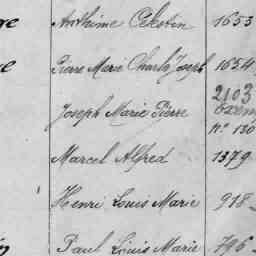 Anthime Célestin 1653
Pierre Marie Charles Joseph 1654
Joseph Marie Pierre 2103
n° 130
Marcel Alfred 1379
Henri Louis Marie 918
Paul Louis Marie 796